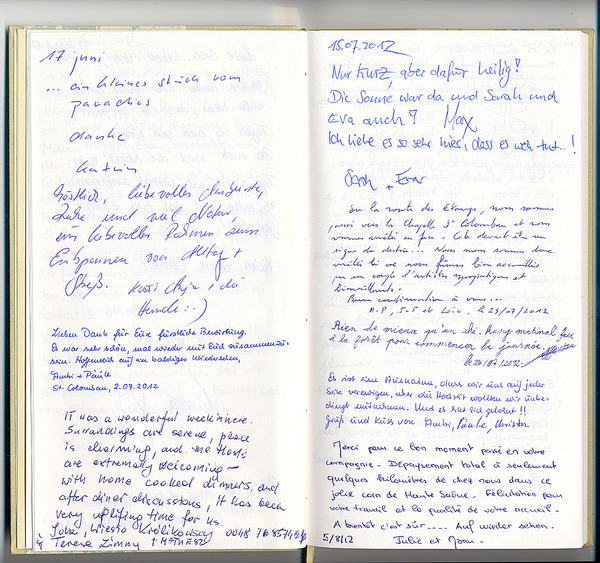 17 juni
... ein kleines stück vom
paradies
danke
katrin
Köstlich, liebevolles Ambiente,
Ruhe und viel Natur,
ein liebevoller Rahmen zum
Entspannen von Alltag +
Streß.
Hunde :-)
Lieben Dank für Eure fürstliche Bewirtung.
Es war sehr schön, mal wieder mit Euch zusammenzu-
sein. Hoffentlich auf ein baldiges Wiedersehen,
Ambi + Päule
St. Colomban, 2.07.2012
IT was a wonderful weekin here.
Surrandings are serene, place
is charming, and the Hosts
are extremely welcoming -
with home cooked dinners, and
after diner discussions, it has been
very uplifting time for us.
Wiesio Królikowscy 0048
& Teresa Zimny
15.07.2012
Nur kurz, aber dafür heilig!
Die Sonne war da und Sarah und
Eva auch? Max
Ich liebe es so sehr hier, dass es weh tut...!
Sarah + Eva
Sur la route des Etangs, nous sommes
passé vers la Chapelle St Colomban et nous
sommes arrêté en face. Cela devait être un
signe du destin... Nous nous sommes donc
arrêté ici où nous fûmes bien accueillis
par un couple d'artistes sympathiques et
bienveillants.
Bonne continuation à vous...
A.P, J-F et Loïc. le 23/07/2012
Rien de mieux qu'un thé Rusty matinal face
à la forêt pour commencer la journée.
le 24/07/2012
Es ist eine Ausnahme, dass wir uns auf jeder
Seite verewigen, aber die Hochzeit wollten wir unbe-
dingt mitnehmen. Und es hat sich gelohnt!!
Gruß und Kuss von Ambi, Päule, Christa
Merci pour ce bon moment passé en votre
compagnie. Dépaysement total à seulement
quelques kilomètres de chez nous dans ce
jolie coin de Haute Saône. Félicitation pour
votre travail et la qualité de votre accueil.
A bientôt c'est sûr .... Auf wieder sehen.
5/8/12 Julie et